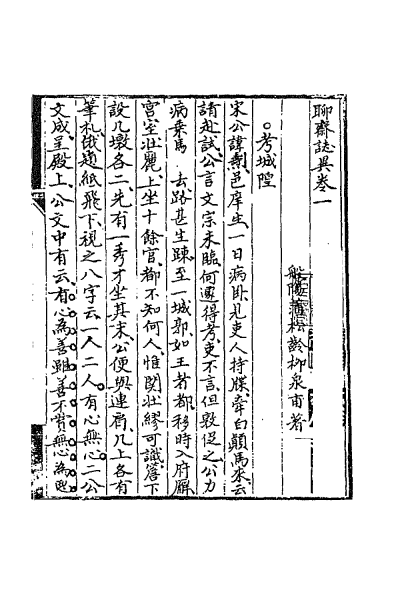 聊齋誌異卷一
般陽蒲松齡柳泉甫著
○考城隍
宋公諱燾邑庠生一日病卧見吏人持牒牽白顛馬來云
請赴試公言文宗未臨何遽得考吏不言但敦促之公力
病乘馬 去路甚生疎至一城郭如王者都移時入府廨
宮室壯麗上坐十餘官都不知何人惟関壯繆可識簷下
設几墩各二先有一秀才坐其末公便與連肩几上各有
筆札俄題紙飛下視之八字云一人二人有心無心二公
文成呈殿上公文中有云有心為善雖善不賞無心為惡